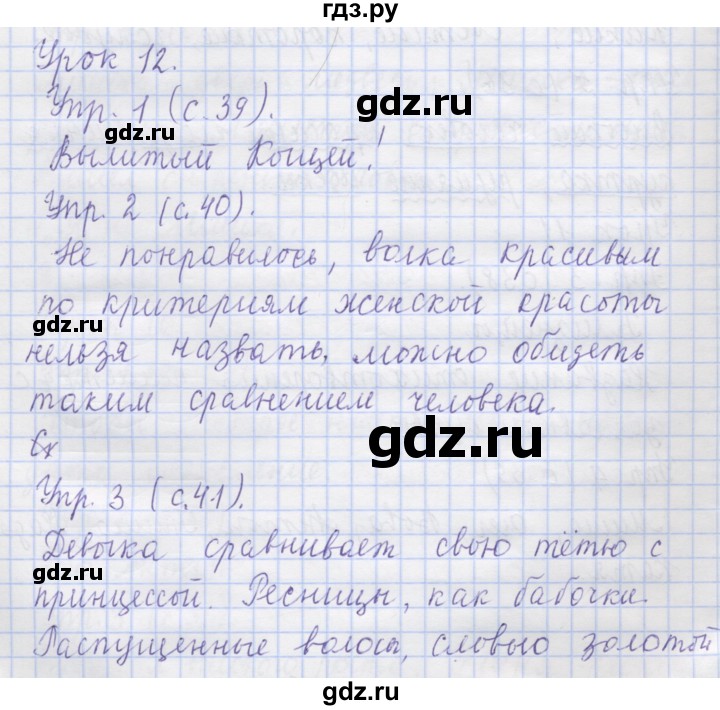 гдз.ру
Урок 12.
Упр. 1 (с. 39).
gdz.ru
gdz.ru
Вылитый Кощей!
Упр. 2 (с. 40).
Не понравилось, волка красивым
по критериям женской красоты
gdz.ru
нельзя назвать, можно обидеть
таким сравнением человека.
gdz.ru
Упр. 3 (с. 41).
Девочка сравнивает свою тётю с
gdz.ru
принцессой. Ресницы, как бабочки.
Распущенные волосы, словно золотой
gdz.ru